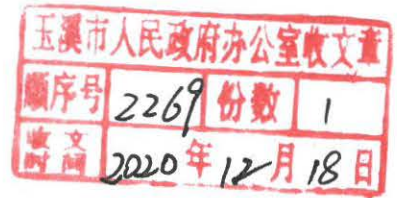 玉溪市人民政府办公室收文章
顺序号 2269 份数 1
收文时间 2020年12月18日